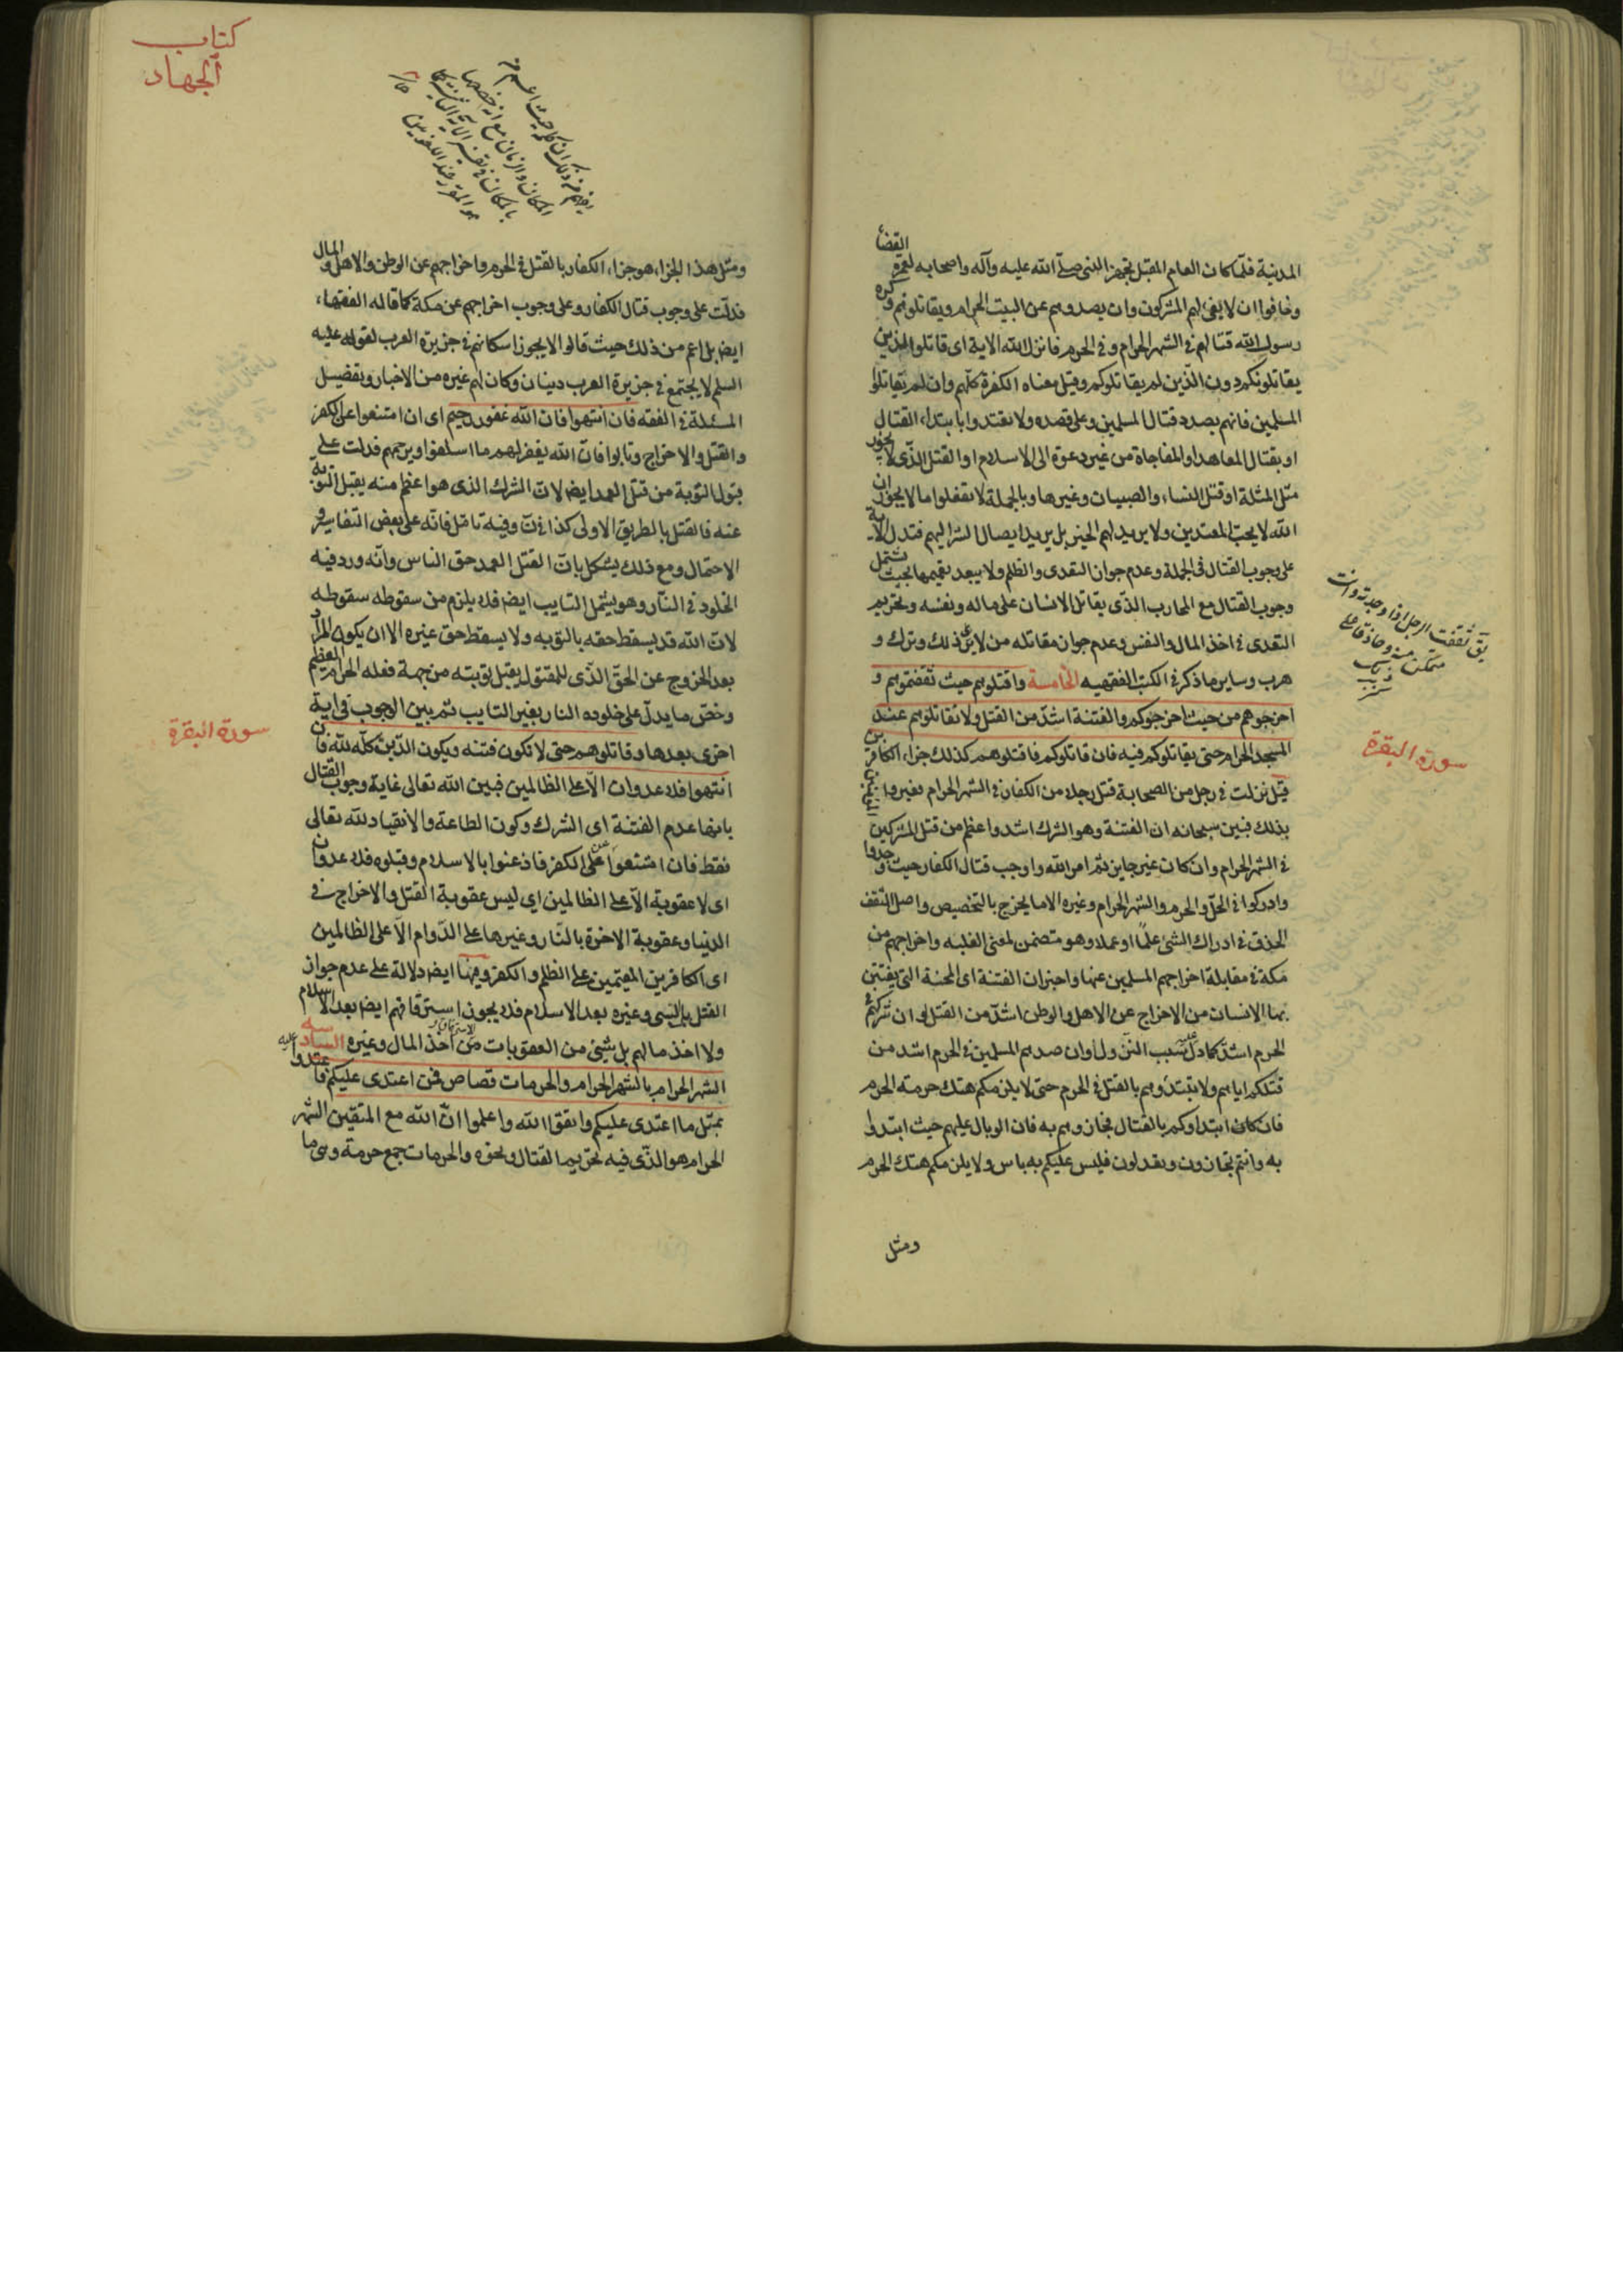 المدنية فلما كان العام المقبل تجهز النبى صلى الله عليه وآله واصحابه لعمرة القضاء
وخافوا ان لا يفى لهم المشركون وان يصدوهم عن البيت الحرام ويقاتلوهم وكره
رسول الله قتالهم فى الشهر الحرام وفى الحرم فانزل الله الاية اى قاتلوا الذين
يقاتلونكم دون الذين لم يقاتلوكم وقيل معناه الكفرة كلهم وان لم يقاتلوا
المسلمين فانهم بصدد قتال المسلمين وعلى قصده ولا تعتدوا بابتداء القتال
او بقتال المعاهد او المفاجاة من غير دعوة الى الاسلام او القتل الذى لا يجوز
مثل المثلة او قتل النساء والصبيان وغيرها وبالجملة لا تفعلوا ما لا يجوز ان
الله لا يحب المعتدين ولا يريد لهم الخير بل يريد ايصال الشر اليهم فتدل الاية
على وجوب القتال فى الجملة وعدم جواز التعدى والظلم ولا يبعد تعميمها بحيث تشتمل
وجوب القتال مع المحارب الذى يقاتل الانسان على ماله ونفسه وتحريم
التعدى فى اخذ المال والنفس وعدم جواز مقاتله من ذلك وترك و
هرب وساير ما ذكر فى الكتب الفقهيه الخامسة واقتلوهم حيث ثقفتموهم و
اخرجوهم من حيث اخرجوكم والفتنة اشد من القتل ولا تقاتلوهم عند
المسجد الحرام حتى يقاتلوكم فيه فان قاتلوكم فاقتلوهم كذلك جزاء الكافرين
قيل نزلت فى رجل من الصحابة قتل رجلا من الكفار فى الشهر الحرام فعيروا المؤمنين
بذلك فبين سبحانه ان الفتنة وهو الشرك اشد واعظم من قتل المشركين
فى الشهر الحرام وان كان غير جايز ثم امر الله واوجب قتال الكفار حيث وجدوا
وادركوا فى الحل والحرم والشهر الحرام وغيره الا ما يخرج بالتخصيص واصل الثقف
الحذق فى ادراك الشئ علما او عملا وهو متضمن لمعنى الغلبه واخراجهم من
مكة فى مقابلة اخراجهم المسلمين عنها واخبر ان الفتنة اى المحنة التى يفتتن
بها الانسان من الاخراج عن الاهل والوطن اشد من القتل او ان شركهم فى
الحرم اشد كما دل عليه سبب النزول او ان صدهم المسلمين فى الحرم اشد من
قتلكم اياهم ولا تبتدؤهم بالقتل فى الحرم حتى لا يلزمكم هتك حرمة الحرم
فان كان ابتداوكم بالقتال فجازوهم به فان الوبال عليهم حيث ابتدوا
به وانتم تجازون وتعدلون فليس عليكم به باس ولا يلزمكم هتك الحرم
ومثل
يق ثقفت الرجل اذا وجدته وانت
متمكن منه وحاذقا على
سورة البقرة
كتاب
الجهاد
ومثل هذا الجزاء هو جزاء الكفار بالقتل فى الحرم واخراجهم عن الوطن والاهل والمال
فدلت على وجوب قتال الكفار وعلى وجوب اخراجهم عن مكة كما قاله الفقهاء
ايضا بل اعم من ذلك حيث قالوا لا يجوز اسكانهم فى جزيرة العرب لقوله عليه
السلم لا يجتمع فى جزيرة العرب دينان وكان لهم غيره من الاخبار وتفصيل
المسئلة فى الفقه فان انتهوا فان الله غفور رحيم اى ان امتنعوا عن الكفر
والقتل والاخراج وتابوا فان الله يغفر لهم ما اسلفوا ويرحمهم فدلت على
قبول التوبة من قتل العمد ايضا لان الشرك الذى هو اعظم منه يقبل التوبة
عنه فالقتل بالطريق الاولى كذا فى ن وفيه تامل فانه على بعض التفاسير و
الاحتمال ومع ذلك يشكل بان القتل العمد حق الناس وانه ورد فيه
الخلود فى النار وهو يشمل التايب ايضا فلا يلزم من سقوطه سقوطه
لان الله قد يسقط حقه بالتوبه ولا يسقط حق غيره الا ان يكون المراد
بعد الخروج عن الحق الذى للمقتول يقبل توبته من جهة فعله الحرام العظيم
وخص ما يدل على خلوده النار بغير التايب ثم بين الوجوب فى اية
اخرى بعدها وقاتلوهم حتى لا تكون فتنه ويكون الدين كله لله فان
انتهوا فلا عدوان الا على الظالمين فبين الله تعالى غاية وجوب القتال
بانها عدم الفتنة اى الشرك وكون الطاعة والانقياد لله تعالى
فقط فان امتنعوا عن الكفر فاذعنوا بالاسلام وقبلوه فلا عدوان
اى لا عقوبة الا على الظالمين اي ليس عقوبة القتل والاخراج فى
الدنيا وعقوبة الاخرة بالنار وغيرها على الدوام الا على الظالمين
اى الكافرين المقيمين على الظلم والكفر وفيها ايضا دلالة على عدم جواز
القتل بالسبى وغيره بعد الاسلام فلا يجوز استرقاقهم ايضا بعد الاسلام
ولا اخذ مالهم بل شيئ من العقوبات من اخذ المال وغيره السادسه
الشهر الحرام بالشهر الحرام والحرمات قصاص فمن اعتدى عليكم فاعتدوا عليه
بمثل ما اعتدى عليكم واتقوا الله واعلموا ان الله مع المتقين الشهر
الحرام هو الذى فيه تحريم القتال ونحوه والحرمات جمع حرمة وهى ما
سورة البقرة